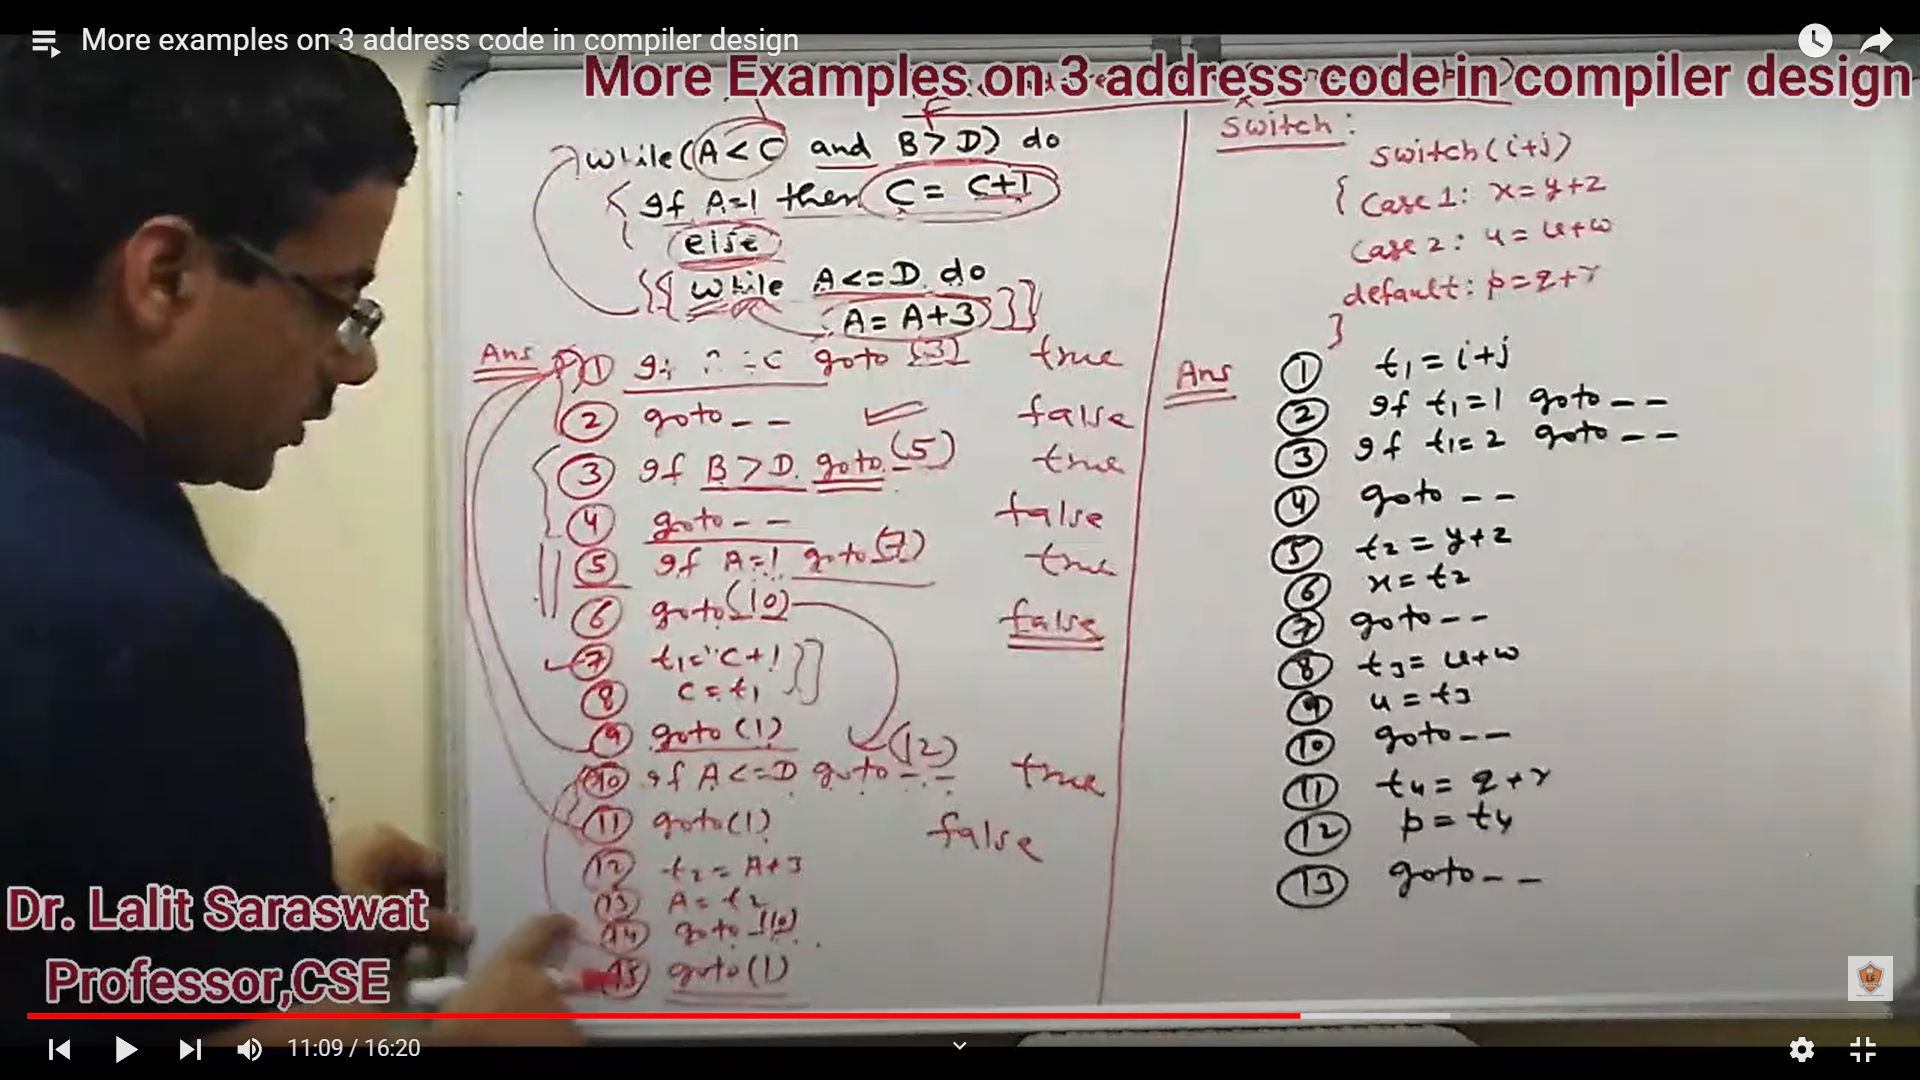 More examples on 3 address code in compiler design
More Examples on 3 address code in compiler design
while (A < C and B > D) do
If A=1 then C = C+1
else
while A<=D do
A = A+3
Ans
1 goto (3) true
2 goto -- false
3 If B > D goto (5) true
4 goto -- false
5 If A=1 goto (7) true
6 goto (10) false
7 t1= C+1
8 C = t1
9 goto (1)
10 If A<=D goto (12) true
11 goto (1) false
12 t2 = A+3
13 A = t2
14 goto (10)
15 goto (1)
Switch :
switch (i+j)
{ Case 1: x = y+z
Case 2: u = u+w
default: p = q+r
}
Ans
1 t1 = i+j
2 If t1=1 goto --
3 If t1=2 goto --
4 goto --
5 t2 = y+z
6 x = t2
7 goto --
8 t3 = u+w
9 u = t3
10 goto --
11 t4 = q+r
12 p = t4
13 goto --
Dr. Lalit Saraswat
Professor,CSE
11:09 / 16:20